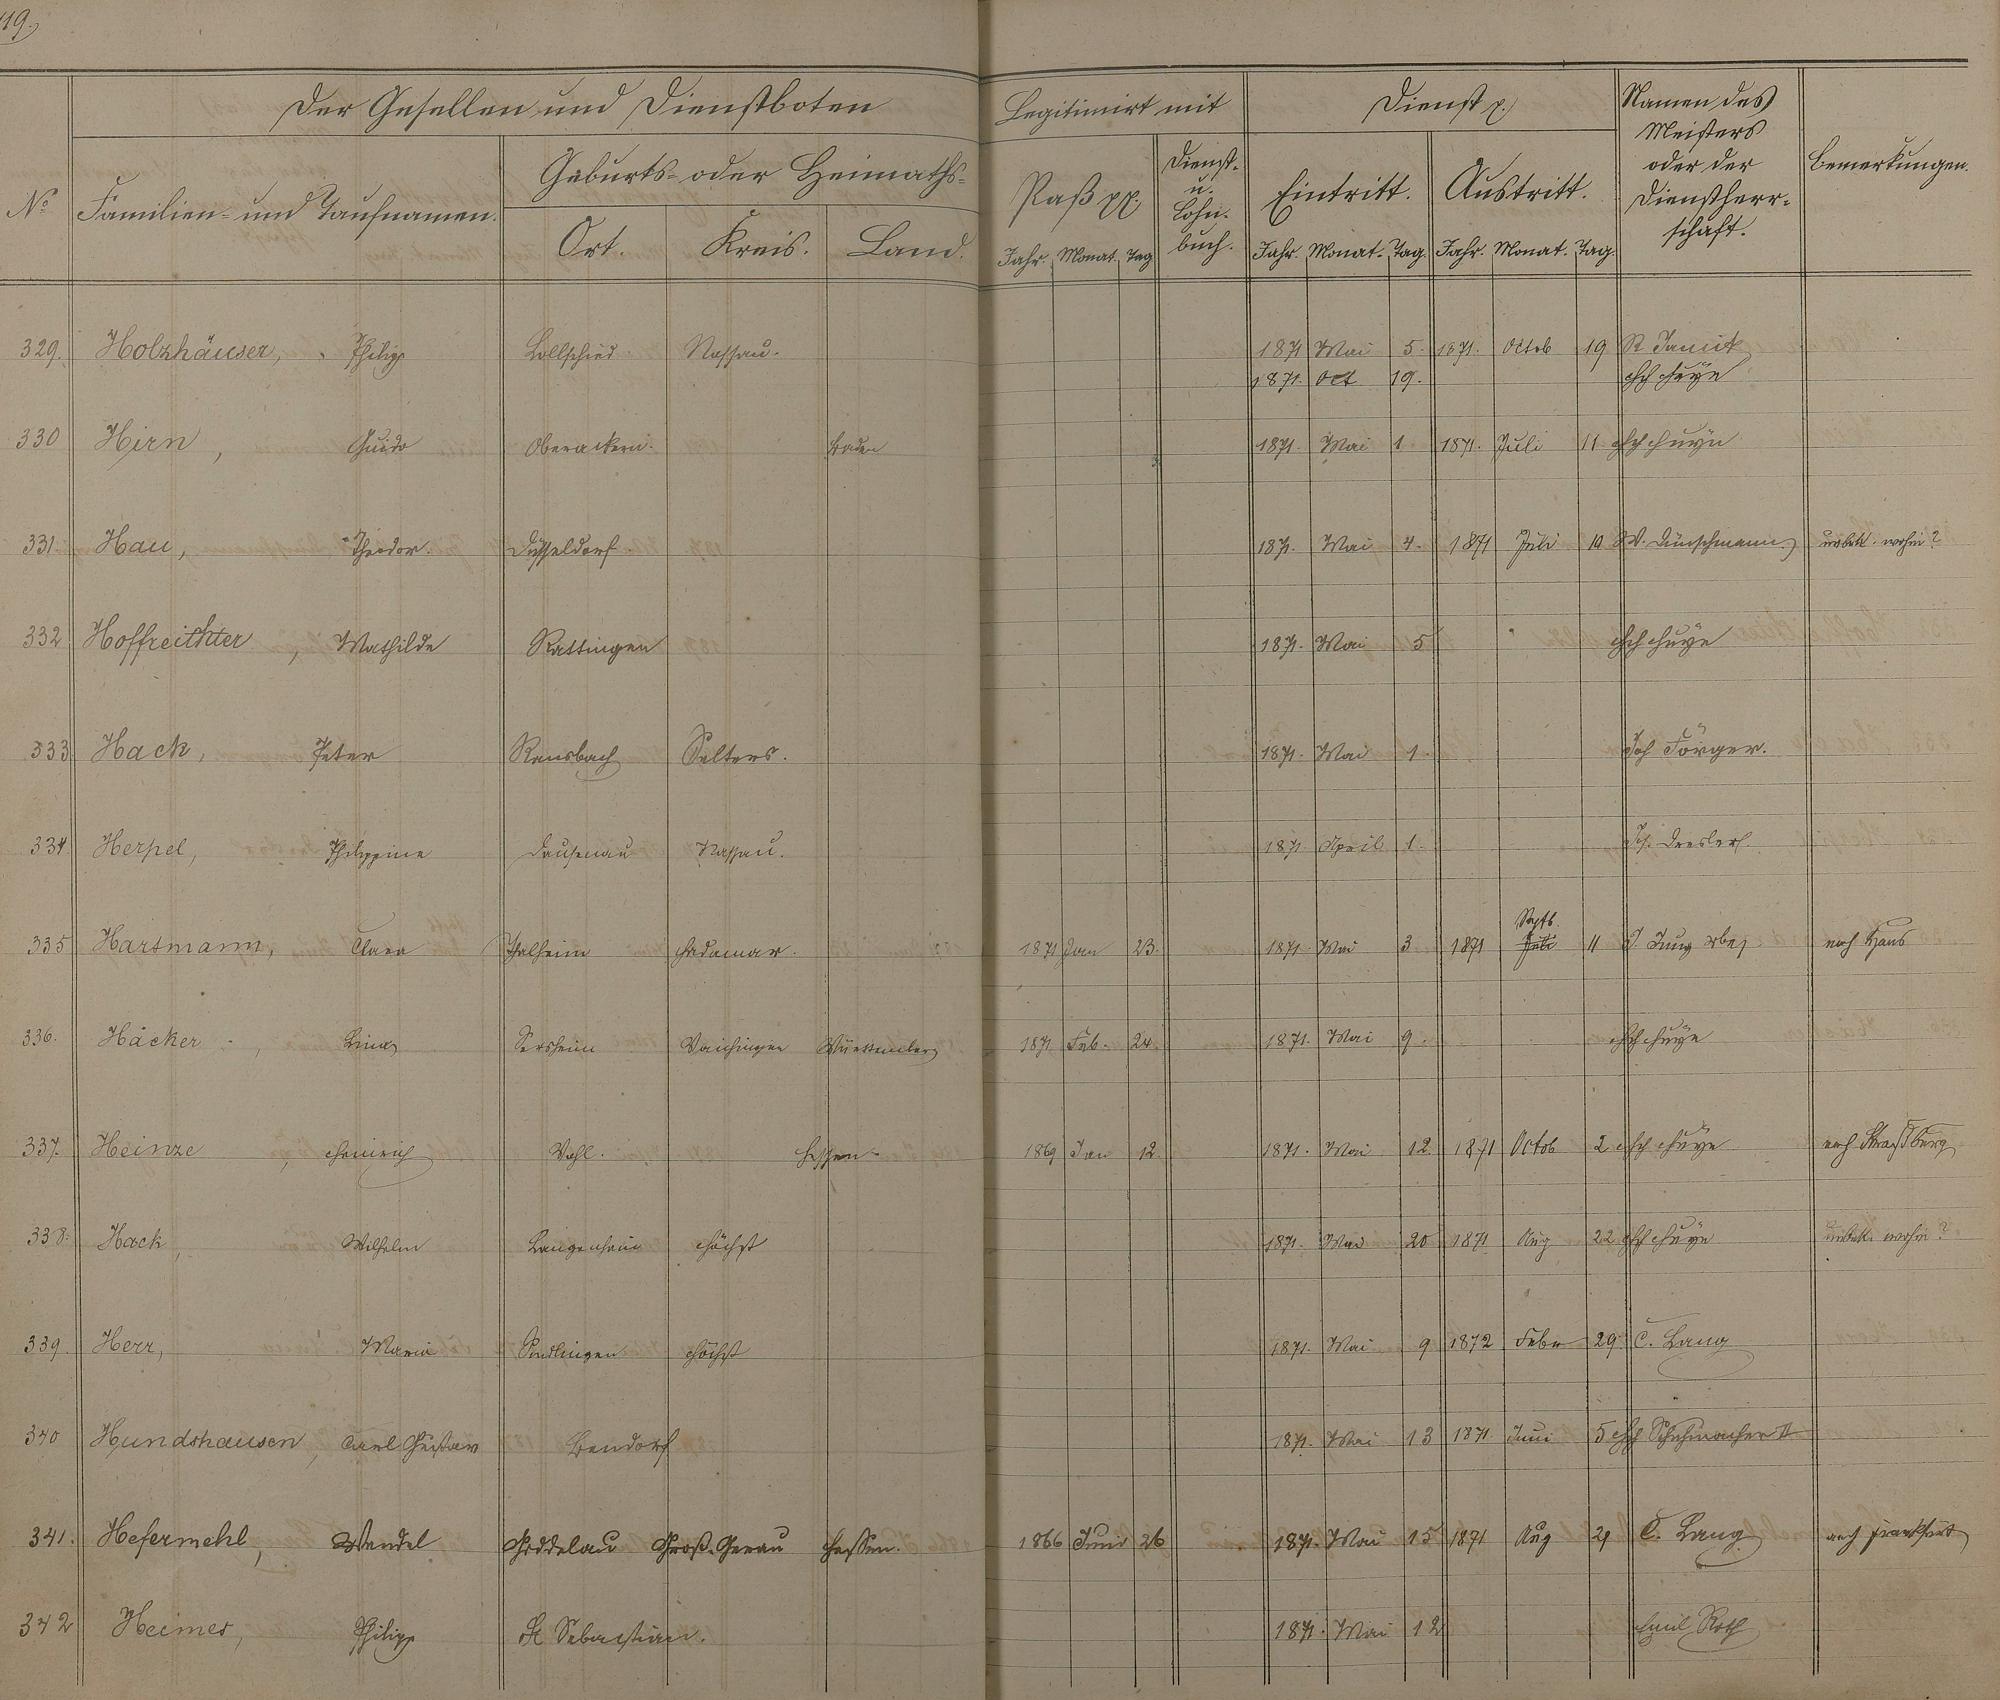 119.
Der Gesellen und Dienstboten
Legitimirt mit
Dienst p.
Namen des Meisters oder der Dienstherrschaft.
Bemerkungen.
No
Familien- und Taufnamen.
Geburts- oder Heimaths-
Ort. Kreis. Land.
Paß pp.
Dienst- u. Lohn- buch.
Eintritt. Austritt.
Jahr. Monat Tag Jahr. Monat. Tag. Jahr. Monat. Tag.
329. Holzhäuser, Philipp Lollschied Nassau. 1871 Mai 5. 1871. Octob 19
1871. Oct 19.
330 Hirn, Guido Oberachern. Baden 1871. Mai 1 1871. Juli 11
331. Hau, Theodor. Düsseldorf. 1871. Mai 4. 1871 Juli 10 W. Dünschmann unbek. wohin?
332 Hoffreithter, Mathilde Rattingen 1871. Mai 5
333 Hack, Peter Ransbach Selters. 1871. Mai 1. Joh Förger.
334 Herpel, Philippine Dausenau Nassau. 1871 April 1.
335 Hartmann, Clara Thalheim Hadamar. 1871 Jan 23. 1871. Mai 3 1871 Juli Septb. 11 J. Jung nach Haus
336. Häcker, Lina Sersheim Vaihingen Württemberg 1871 Feb. 24. 1871. Mai 9.
337. Heinze, Heinrich Vohl. Hessen 1869 Jan 12 1871. Mai 12. 1871 Octob 2 nach Straßburg
338. Hack, Wilhelm Langenhain Höchst 1871. Mai 20 1871 Aug 22 unbek. wohin?
339. Herr, Maria Sindlingen Höchst 1871. Mai 9 1872 Febr 29. C. Lang
340 Hundshausen, Carl Gustav Bendorf 1871. Mai 13 1871 Juni 5 Hch Schuhmacher II
341. Hefermehl, Wendel Goddelau Groß-Gerau Hessen. 1866 Juni 26 1871. Mai 15 1871 Aug 29 C. Lang nach Frankfurt
342 Heimes, Philipp St Sebastian. 1871. Mai 12 Emil Roth